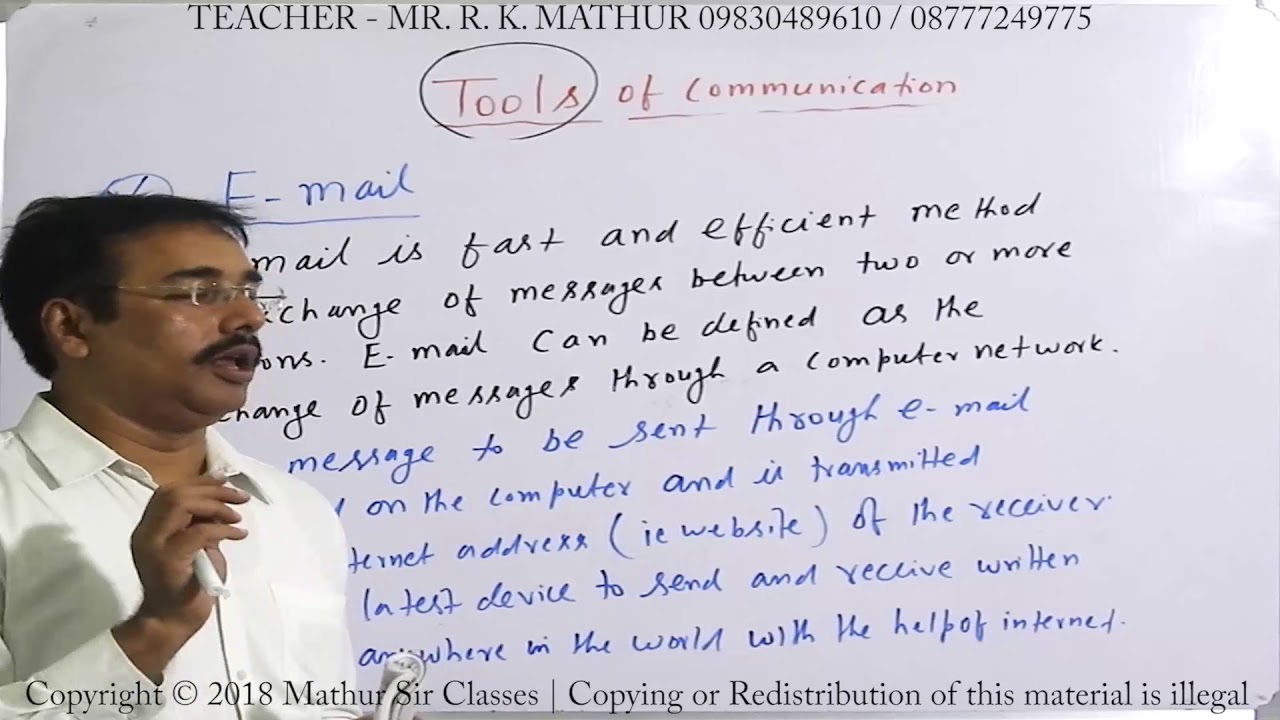 TEACHER - MR. R. K. MATHUR 09830489610 / 08777249775
Tools of Communication
E-mail
mail is fast and efficient method
change of messages between two or more
ons. E-mail Can be defined as the
change of messages through a computer network.
message to be sent through e-mail
on the computer and is transmitted
ternet address (ie website) of the receiver.
latest device to send and receive written
anywhere in the world with the help of internet.
Copyright © 2018 Mathur Sir Classes | Copying or Redistribution of this material is illegal